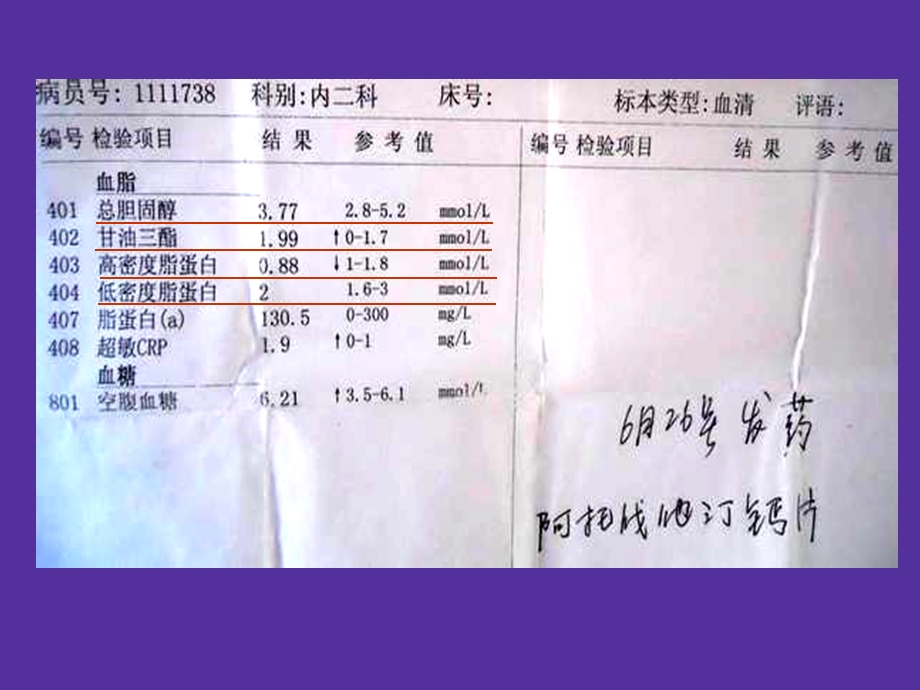 病员号: 1111738 科别:内二科 床号: 标本类型:血清 评语:
编号 检验项目 结果 参考值 编号 检验项目 结果 参考值
血脂
401 总胆固醇 3.77 2.8-5.2 mmol/L
402 甘油三酯 1.99 ↑0-1.7 mmol/L
403 高密度脂蛋白 0.88 ↓1-1.8 mmol/L
404 低密度脂蛋白 2 1.6-3 mmol/L
407 脂蛋白(a) 130.5 0-300 mg/L
408 超敏CRP 1.9 ↑0-1 mg/L
血糖
801 空腹血糖 6.21 ↑3.5-6.1 mmol/L
6月26号发药
阿托伐他汀钙片